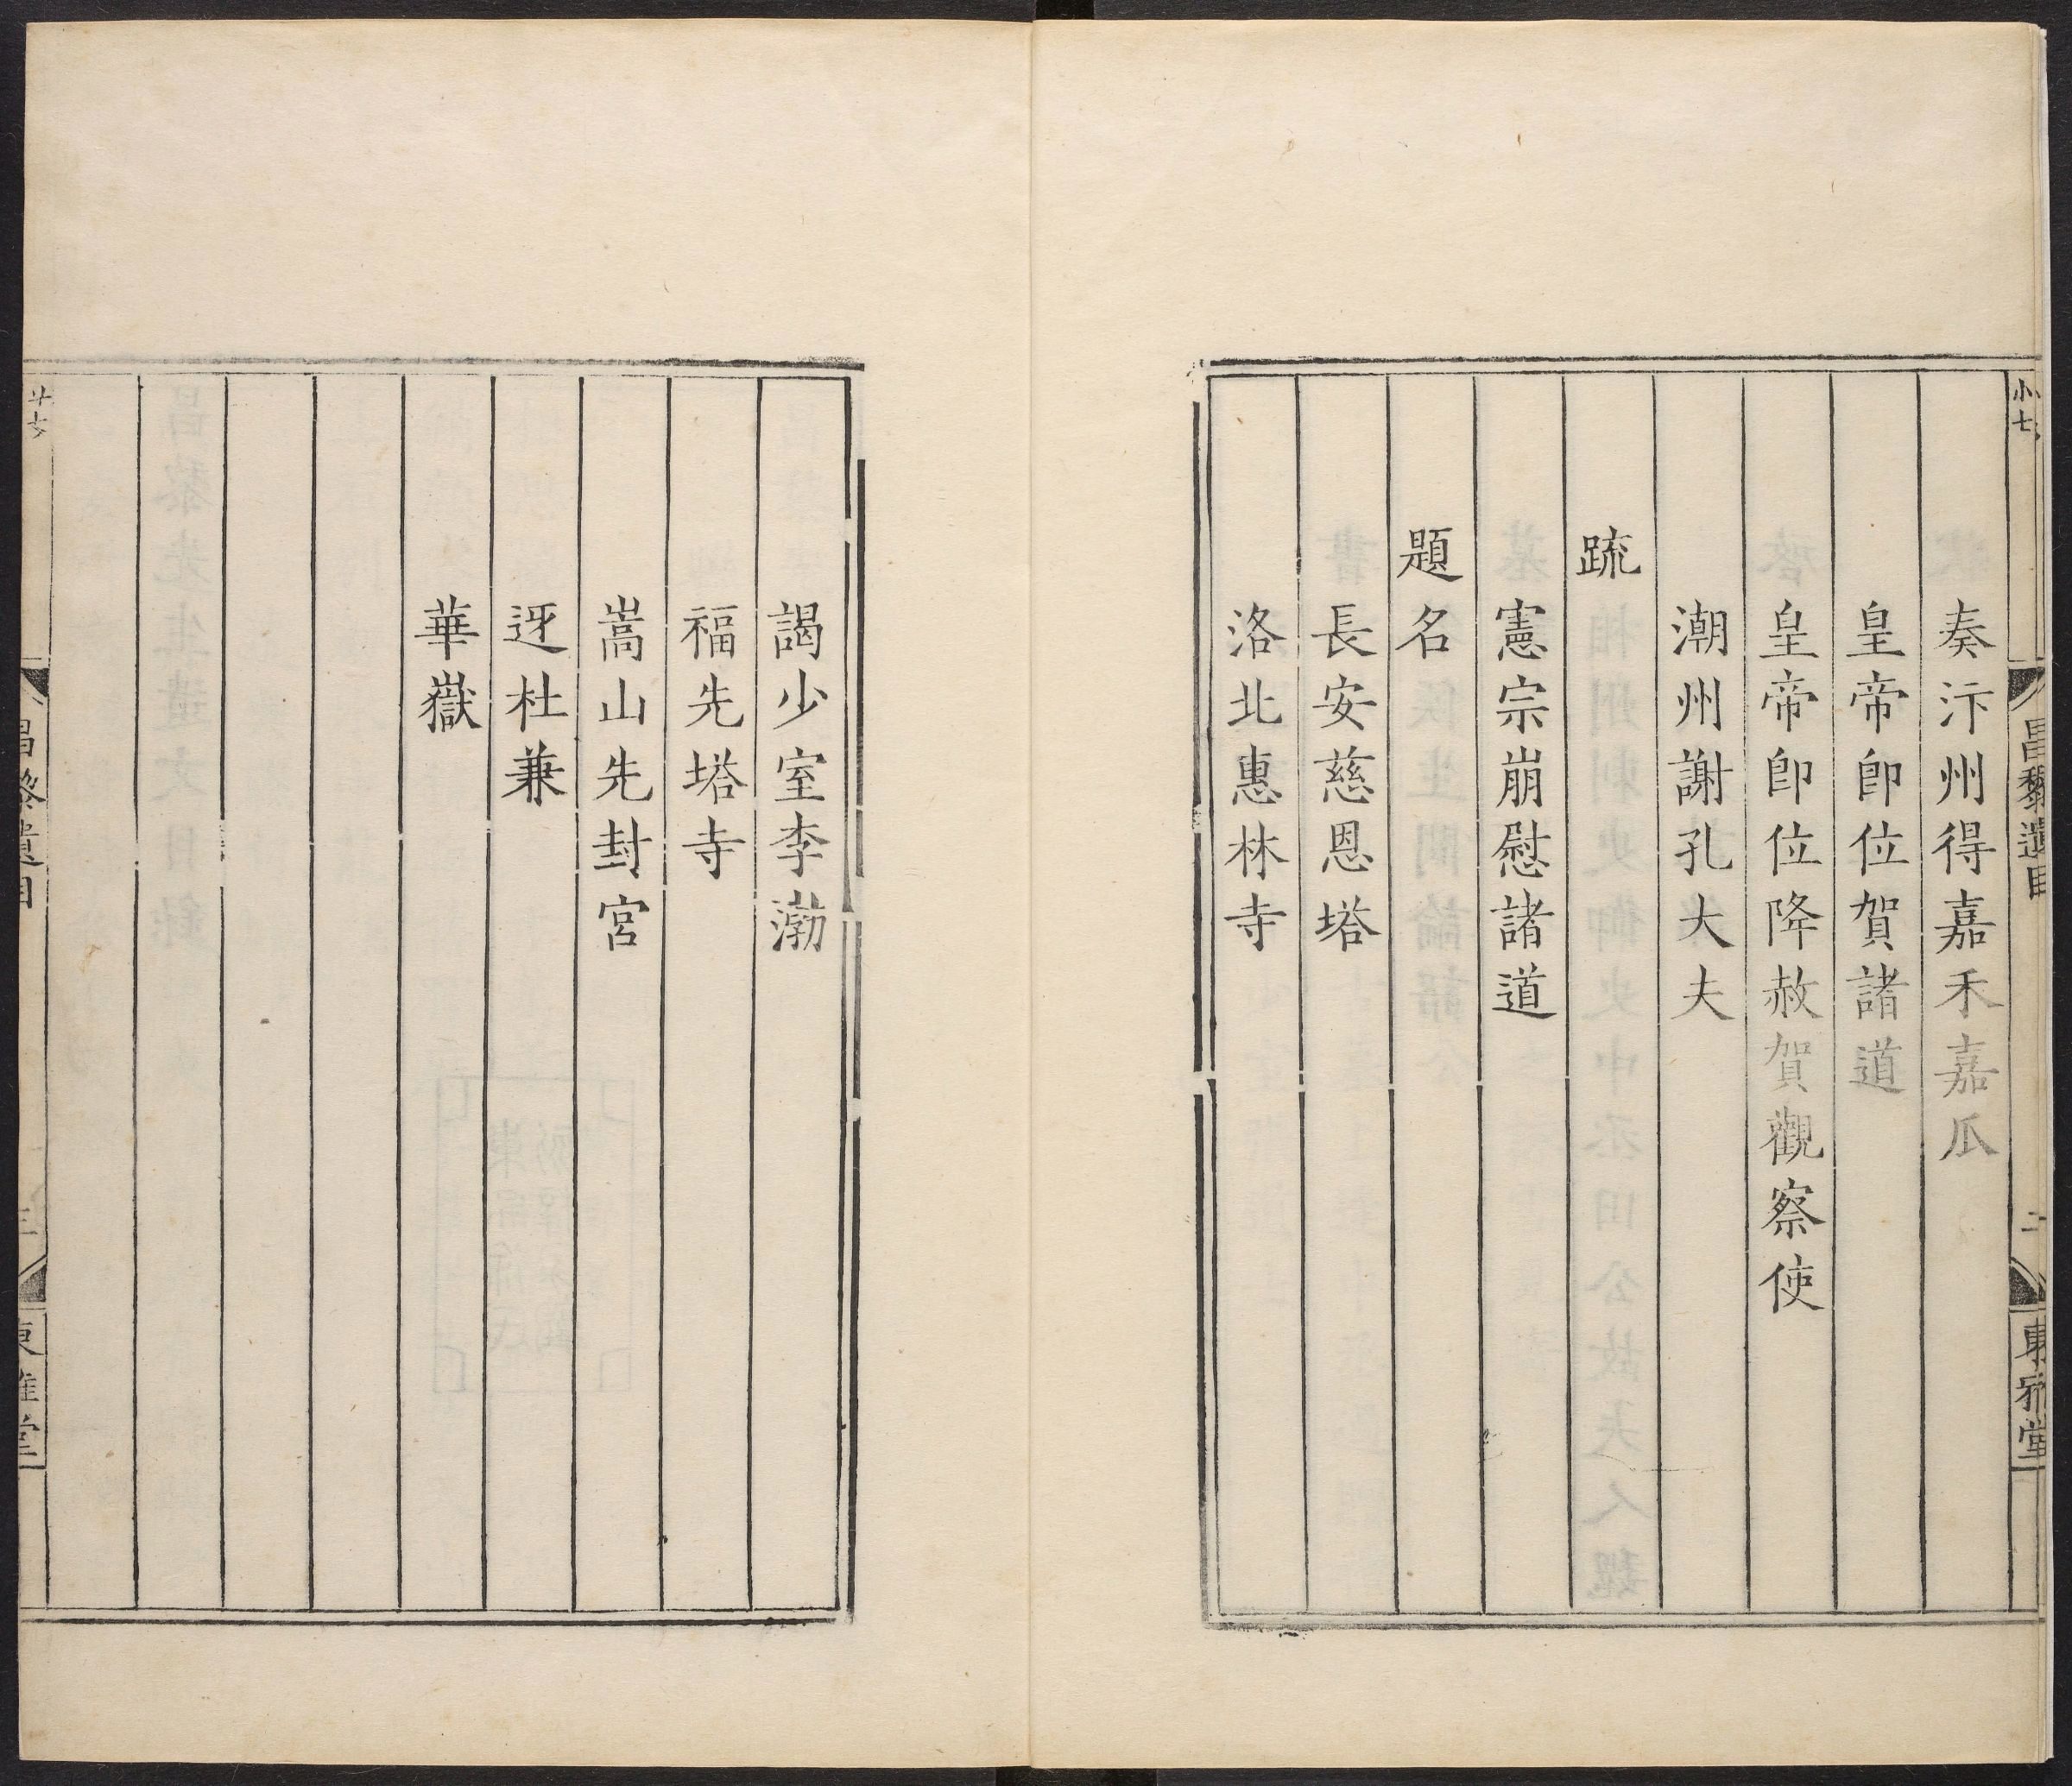 小七
昌黎遺目
二
東雅堂
奏汴州得嘉禾嘉瓜
皇帝卽位賀諸道
皇帝卽位降赦賀觀察使
潮州謝孔大夫
疏
憲宗崩慰諸道
題名
長安慈恩塔
洛北惠林寺
謁少室李渤
福先塔寺
嵩山先封宮
迓杜兼
華嶽
昌黎遺目
三
東雅堂